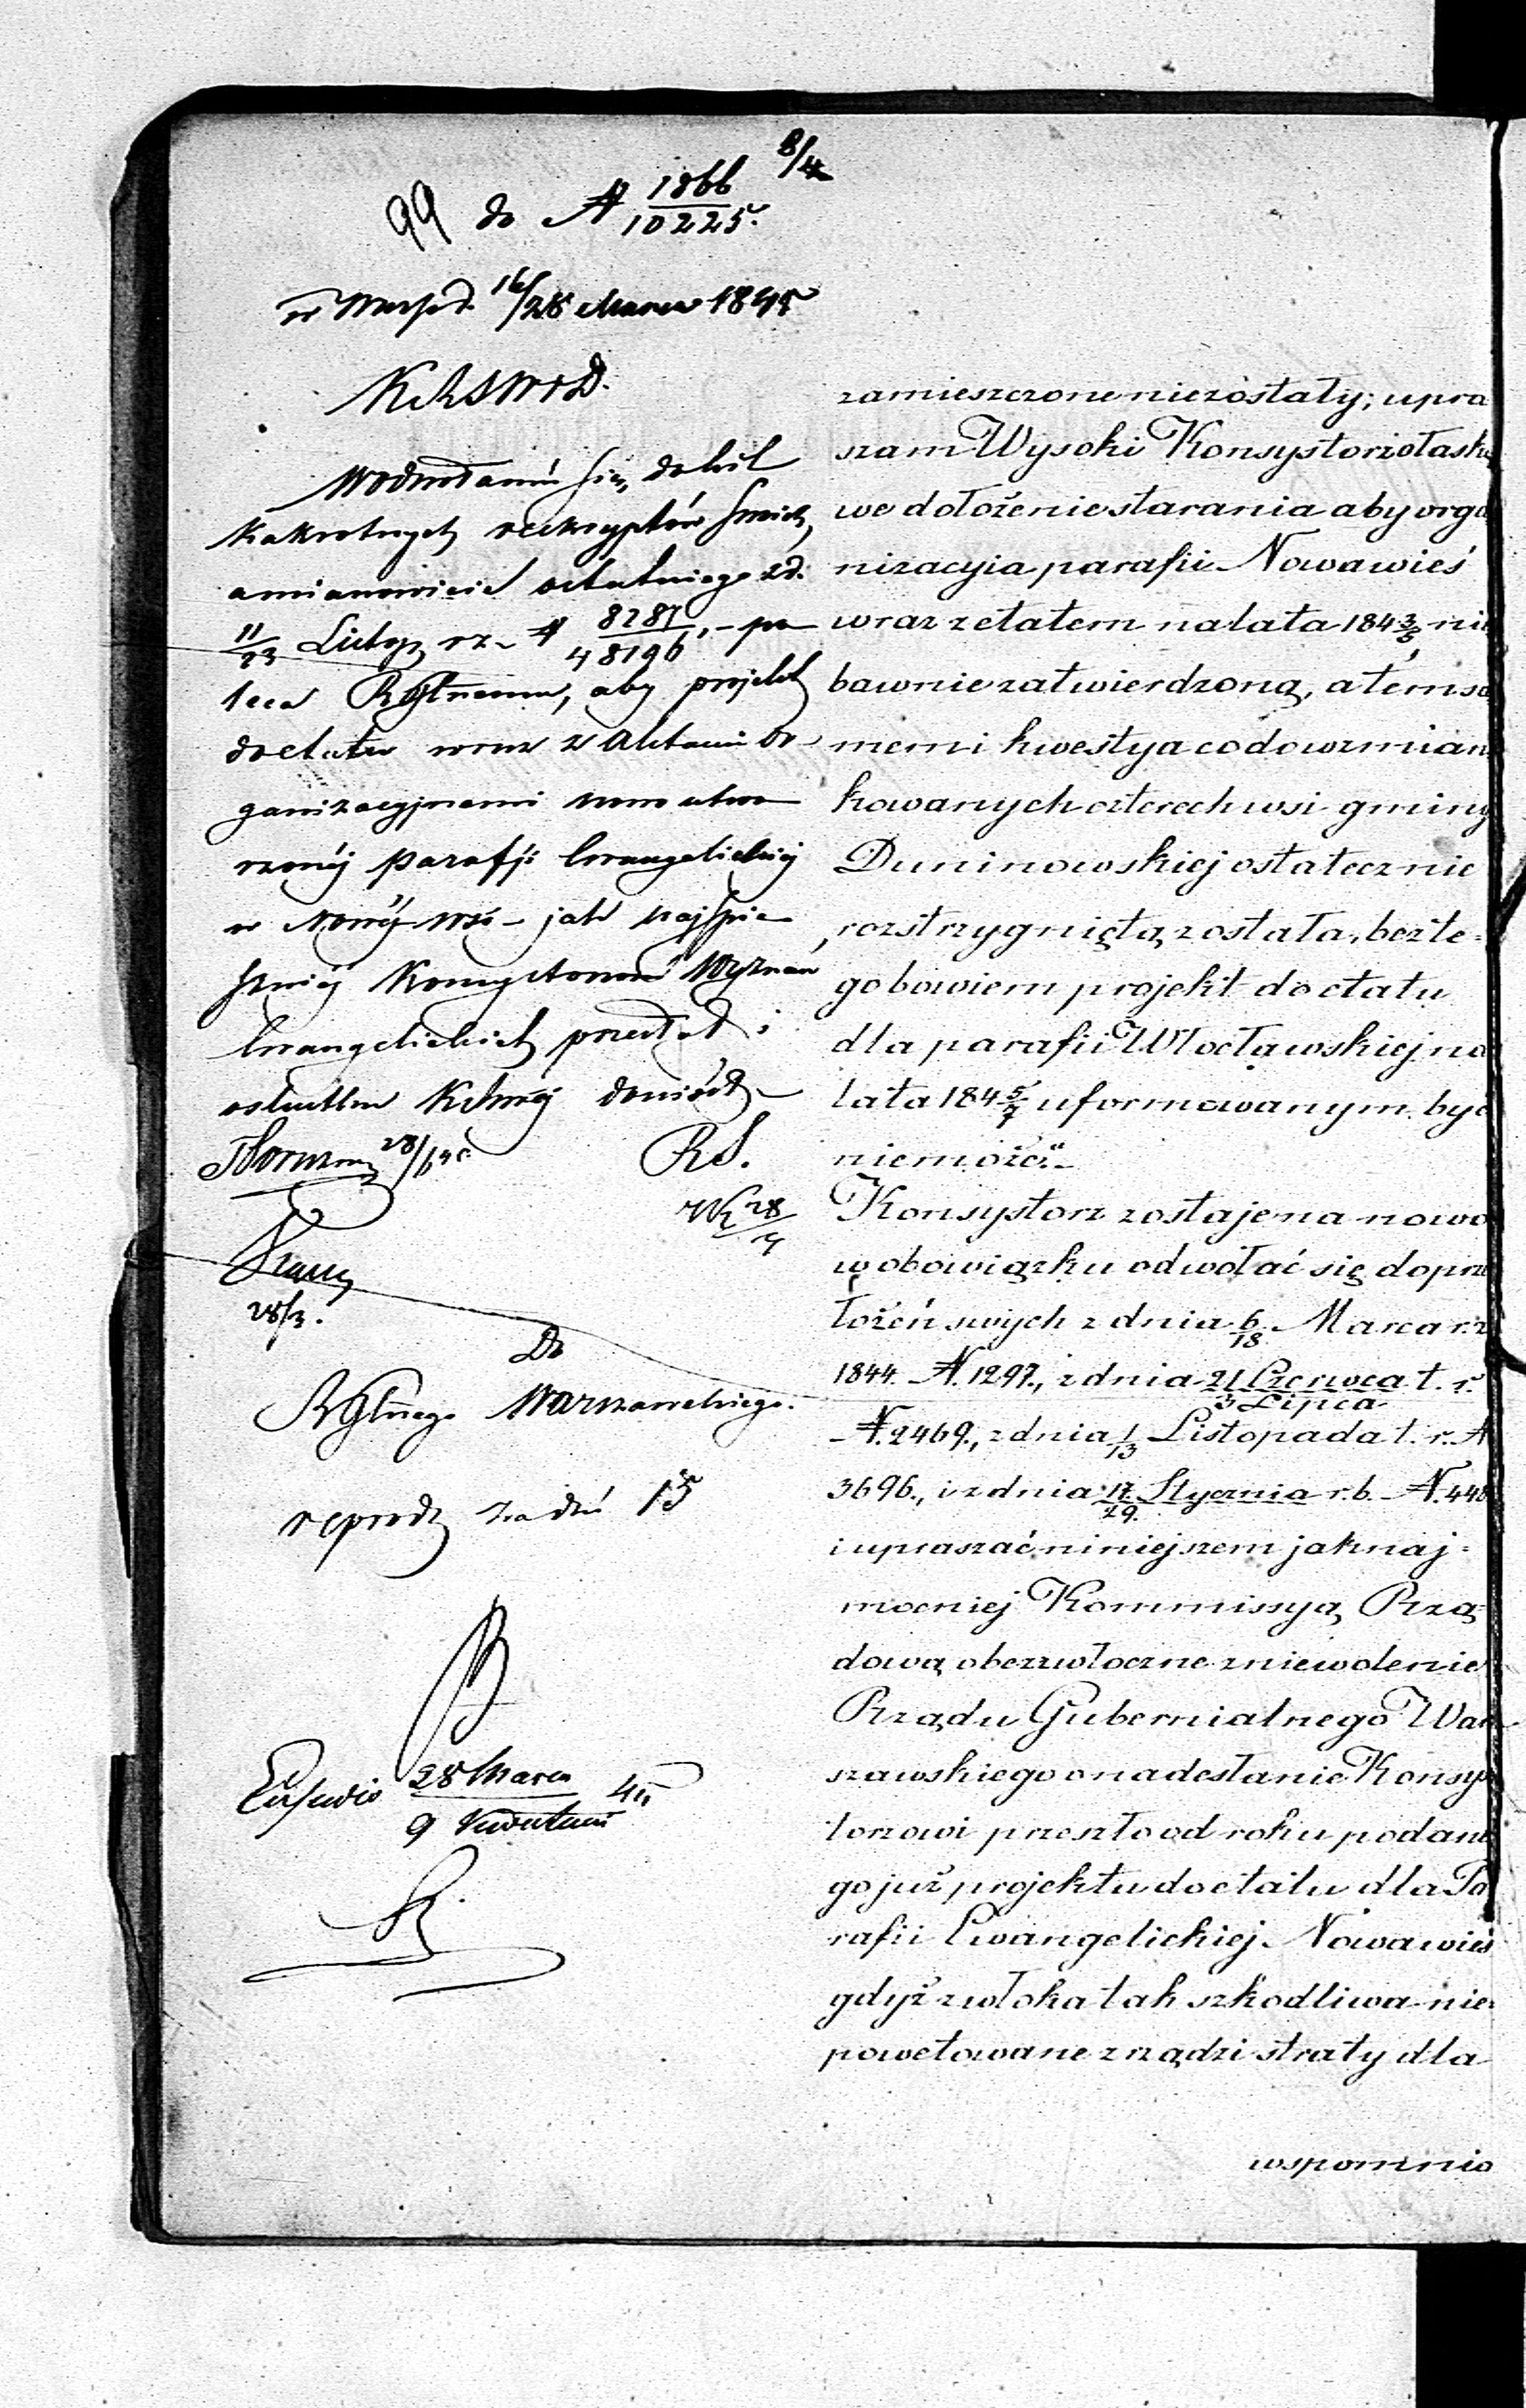 8/4
99 do N 1866/10225.
w Warsz d. 16/28 Marca 1845
KRSWiD.
W odwołaniu się do kil
kakrotnych reskryptów swoich,
a mianowicie ostatniego z d.
11/23 Lutego rz. N 8287/48196, – po
leca RGlnemu, aby projekt
do etatu wraz z Aktami Or
ganizacyjnemi nowo utwo
rzonéj parafji Ewangelickiéj
w Nowéj wsi – jak najspie
szniéj Konsystorzowi Wyznań
Ewangelickich przesłał i
o skutku KRząéj doniósł –
28/3 RS.
28/3
28/3.
Do
RGlnego Warszawskiego.
reprod za dni 15
28 Marca
9 Kwietnia 45
zamieszczone niezostały; upra
szam Wysoki Konsystorz o łaska
we dołożenie starania aby orga
nizacyia parafii Nowawieś
wraz z etatem na lata 184 3/5 nie
bawnie zatwierdzoną, a tém sa
mem i kwestya co do wzmian
kowanych czterech wsi gminy
Duninowskiej ostatecznie
rozstrzygniętą została, bez te=
go bowiem projekt do etatu
dla parafii Włocławskiej na
lata 184 5/7 uformowanym być
niemoże".–
Konsystorz zostaje na nowo
w obowiązku odwołać się do prze
łożeń swych z dnia 6/18 Marca r.z
1844. N. 1297., z dnia 21 Czerwca/3 Lipca t. r.
N. 2469., z dnia 1/13 Listopada t. r. N
3696., i z dnia 17/29 Stycznia r. b. N. 448
i upraszać niniejszem jaknaj=
mocniej Kommissyą Rzą=
dową o bezzwłoczne zniewolenie
Rządu Gubernialnego War
szawskiego o nadesłanie Konsys
torzowi przeszło od roku podane
go już projektu do etatu dla Pa
rafii Ewangelickiej Nowawieś
gdyż zwłoka tak szkodliwa nie=
powetowane zrządzi straty dla
wspomnio